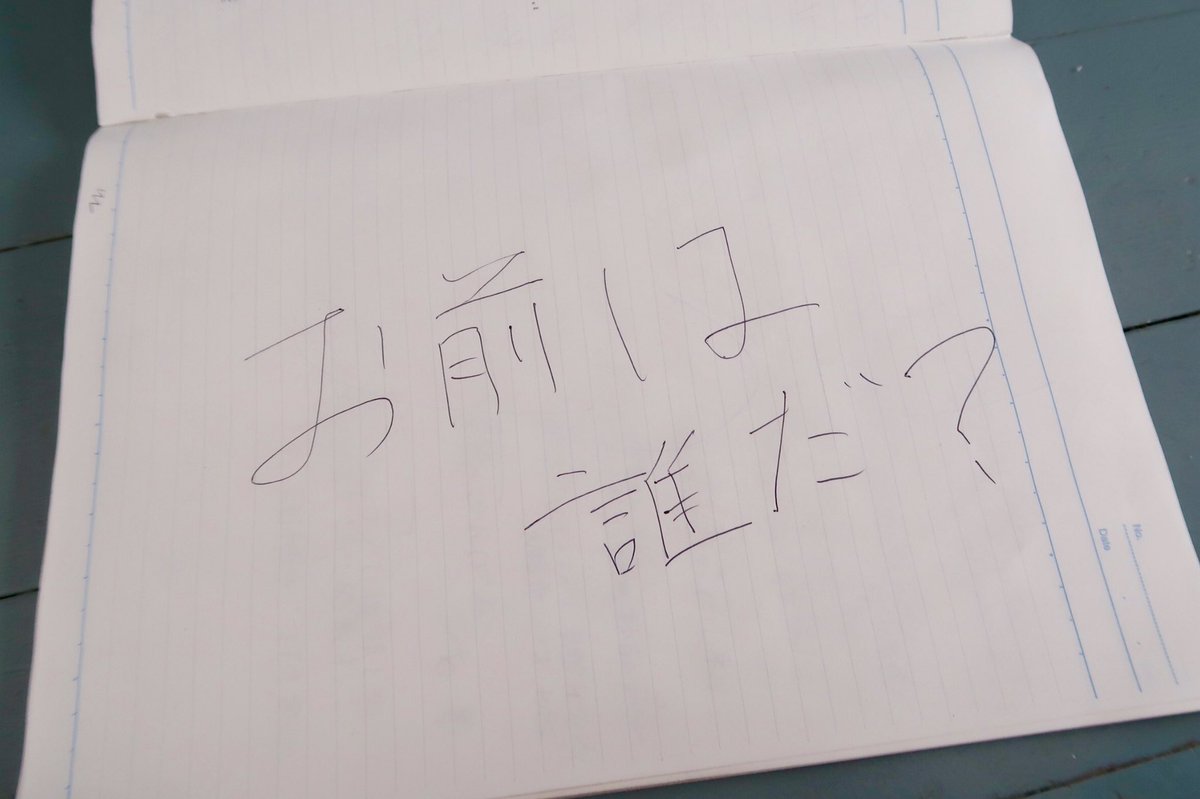 お前は
誰だ?
No.
Date